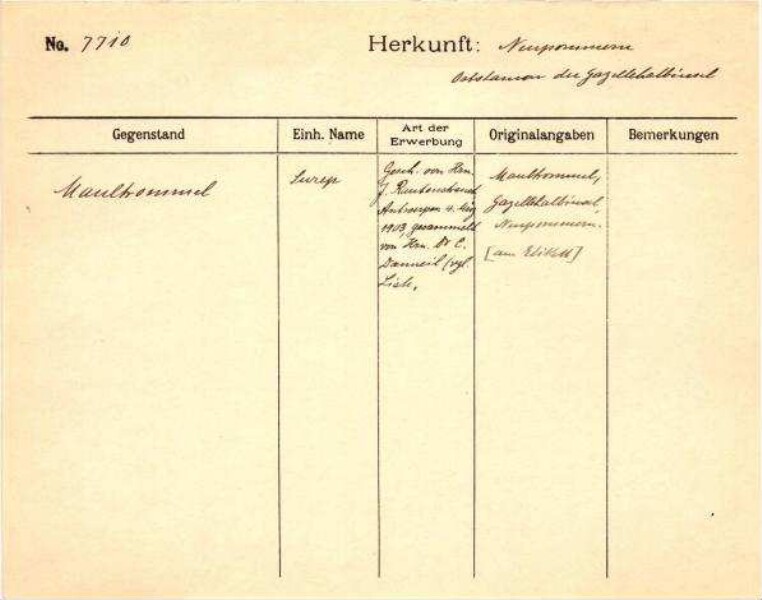 No. 7710
Herkunft: Neupommern
Gazellehalbinsel
Gegenstand
Einh. Name
Art der Erwerbung
Originalangaben
Bemerkungen
Maultrommel
Gesch. von Hrn.
J. Rautenstrauch
Antwerpen 4. Mai
1903, gesammelt
von Hrn. Dr C.
Danneil (vgl.
Liste.
Maultrommel,
Gazellehalbinsel,
Neupommern.
[am Etikett]